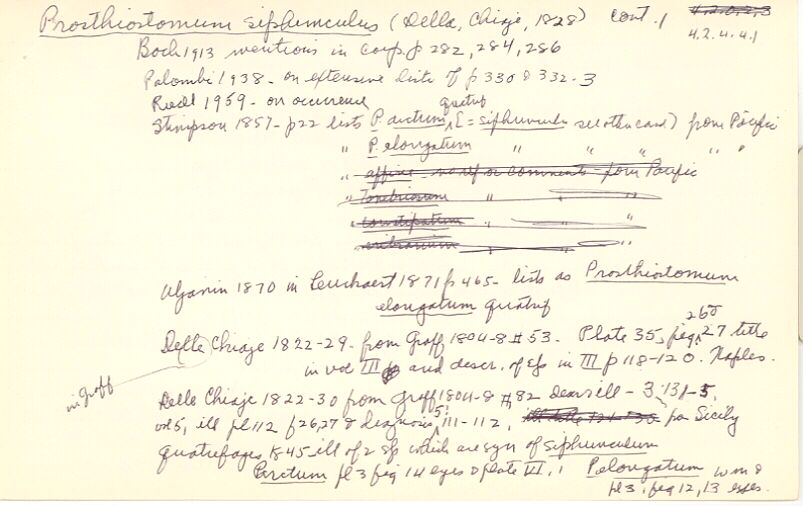 Prosthiostomum siphunculus (Delle, Chiaje, 1828) cont.1 4.2.0.2.3
4.2.4.4.1
Bock 1913 mentions in comp. p 282, 284, 286
Palombi 1938 - on extensive lists of p 330 & 332-3
Riedl 1959 - on ocurrence
Stimpson 1857 - p22 lists P. arctum quatref [= siphunculu see other card) from Pacific
" P. elongatum " " " " "
" affine - no ref or comments - from Pacific
" " "
" constipatum " "
" cribrarium " "
Uljanin 1870 in Leuckaert 1871 p 465 - lists as Prosthiostomum
elongatum quatref
Delle Chiaje 1822-29 - from Graff 1804-8 # 53. Plate 35, fig 26 & 27 title
in vol III and descr. of sfs in III p 118-120. Naples.
in Graff
Delle Chiaje 1822-30 from Graff 1804-8 #82 - 3:131-5,
vol 5, ill pl 112 f 26,27 & diagnosis 5: 111-112, Sicily
Quatrefages 1845 ill of 2 sp which are syn of siphunculum
P. arctum pl 3 fig 14 eyes & plate VI, 1 P. elongatum w m &
pl 3, fig 12, 13 eyes.